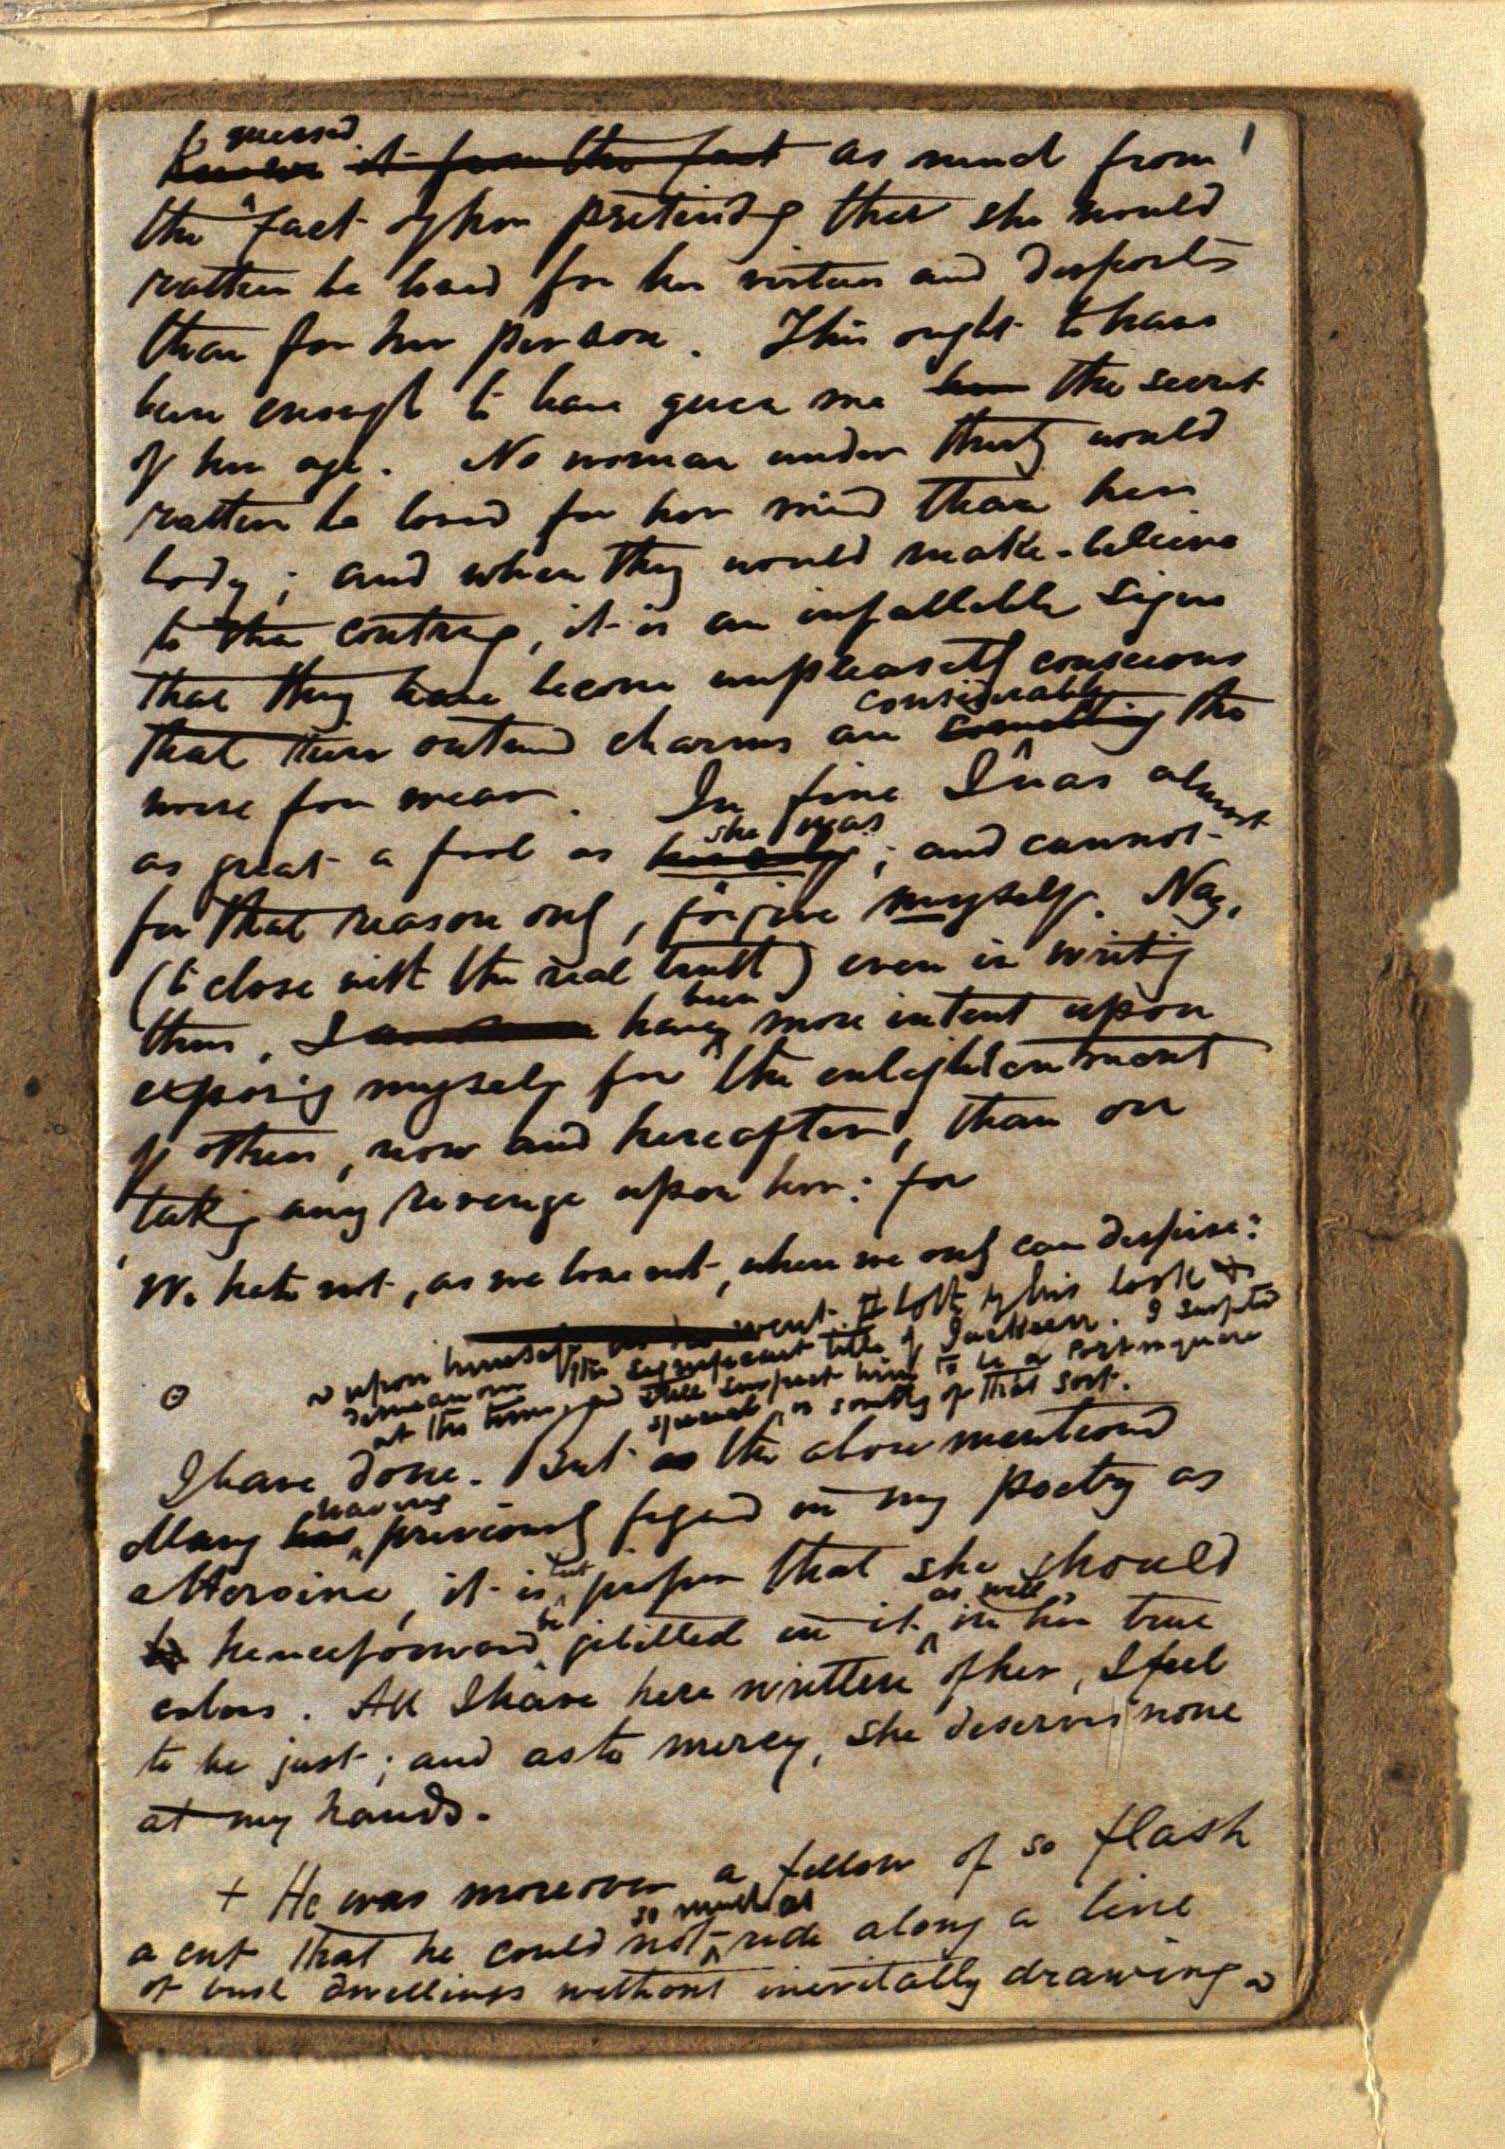 guessed
it from the fact as much from
the fact of her pretending that she would
rather be loved for her virtues and
than for her person. This ought to have
been enough to have given me her the secret
of her age. No woman under thirty would
rather be loved for her mind than her
body; and when they would make-believe
to the contrary, it is an infallible sign
that they have become unpleasantly conscious
considerably
that their outward charms are something the
worse for wear. In fine I was almost
she was
as great a fool as ; and cannot
for that reason only, forgive myself. Nay,
(to close with the real truth) even in writing
been
them, I have more intent upon
exposing myself for the enlightenment
of others, now and hereafter, than on
taking any revenge upon her: for
We hate not, as we love not, when we only can despise:
upon himself went. to his look &
demeanour the significant title of . I suspected
at the time, and still suspect him to be a Portuguese
or something of that sort.
I have done. But as the above mentioned
having
Mary has previously figured in my poetry as
but
a Heroine, it is proper that she should
be as well
henceforward jilted in it in her true
colors. All I have here written of her, I feel
to be just; and as to mercy, she deserves none
at my hands.
+ He was moreover a fellow of so flash
so much as
a cut that he could not ride along a line
of bush dwellings without inevitably drawing